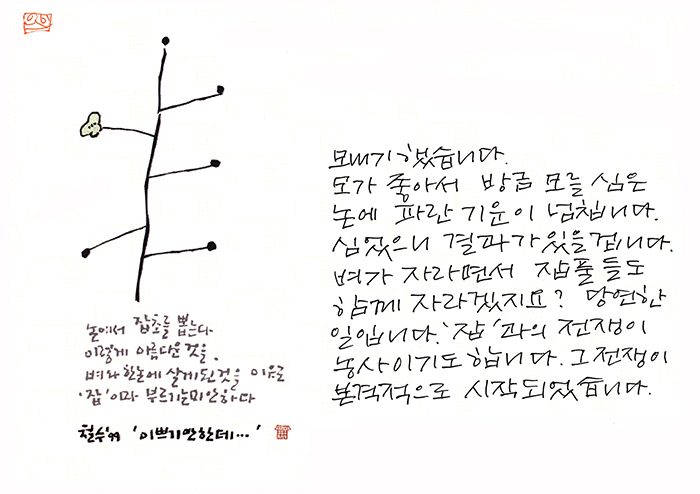 논에서 잡초를 뽑는다
이렇게 아름다운 것을,
벼와 한논에 살게된 것을 이유로
'잡'이라 부르기 미안하다
철수 '99 '이쁘기만 한데…'
모내기 했습니다.
모가 좋아서 방금 모를 심은
논에 파란 기운이 넘칩니다.
심었으니 결과가 있을겁니다.
벼가 자라면서 잡풀들도
함께 자라겠지요? 당연한
일입니다. '잡'과의 전쟁이
농사이기도 합니다. 그 전쟁이
본격적으로 시작되었습니다.